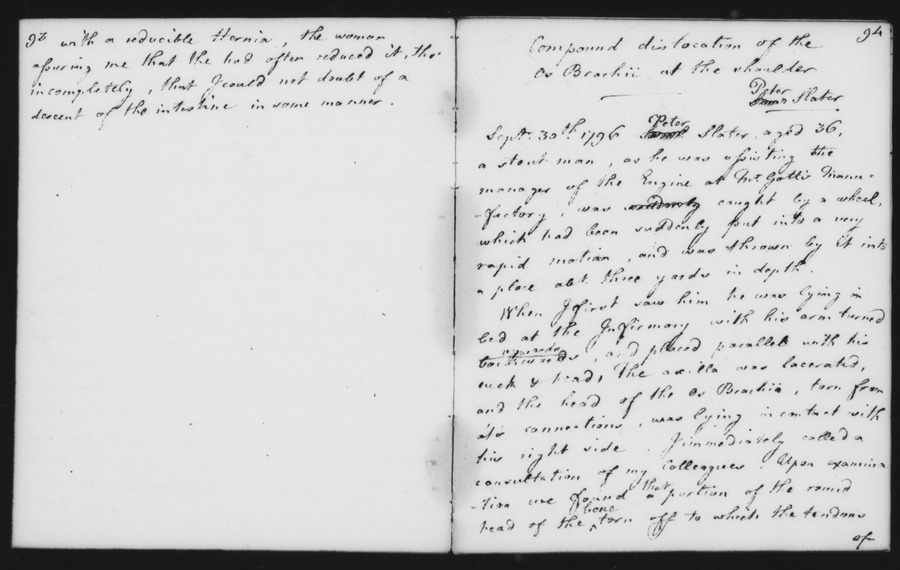 93 with a reducible Hernia, the woman
assuring me that she had often reduced it, tho'
incompletely, that I could not doubt of a
descent of the intestine in some manner.
94
Compound dislocation of the
Os Brachii at the shoulder
Peter
Slater
Peter
Sept. 30th 1796 Slater, aged 36,
a stout man, as he was assisting the
manager of the Engine at Mr. Gotts Manu=
-factory, was suddenly caught by a wheel,
which had been suddenly put into a very
rapid motion, and was thrown by it into
a place abt. three yards in depth.
When I first saw him he was lying in
bed at the Infirmary with his arm turned
upwards
, and placed parallel with his
neck & head, The axilla was lacerated,
and the head of the Os Brachii, torn from
its connections, was lying in contact with
his right side. I immediately called a
consultation of my Colleagues. Upon examina
that
-tion we found a portion of the round
bone
head of the torn off to which the tendons
of